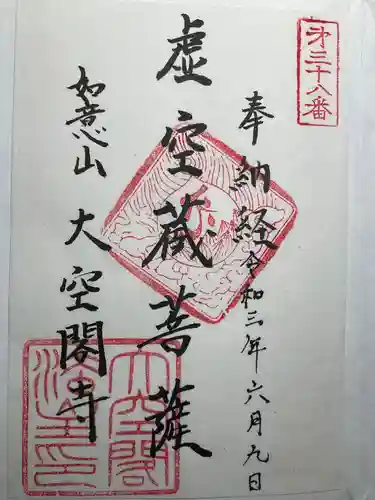 第三十八番
奉納経 令和三年六月九日
虚空蔵菩薩
如意山 大空閣寺